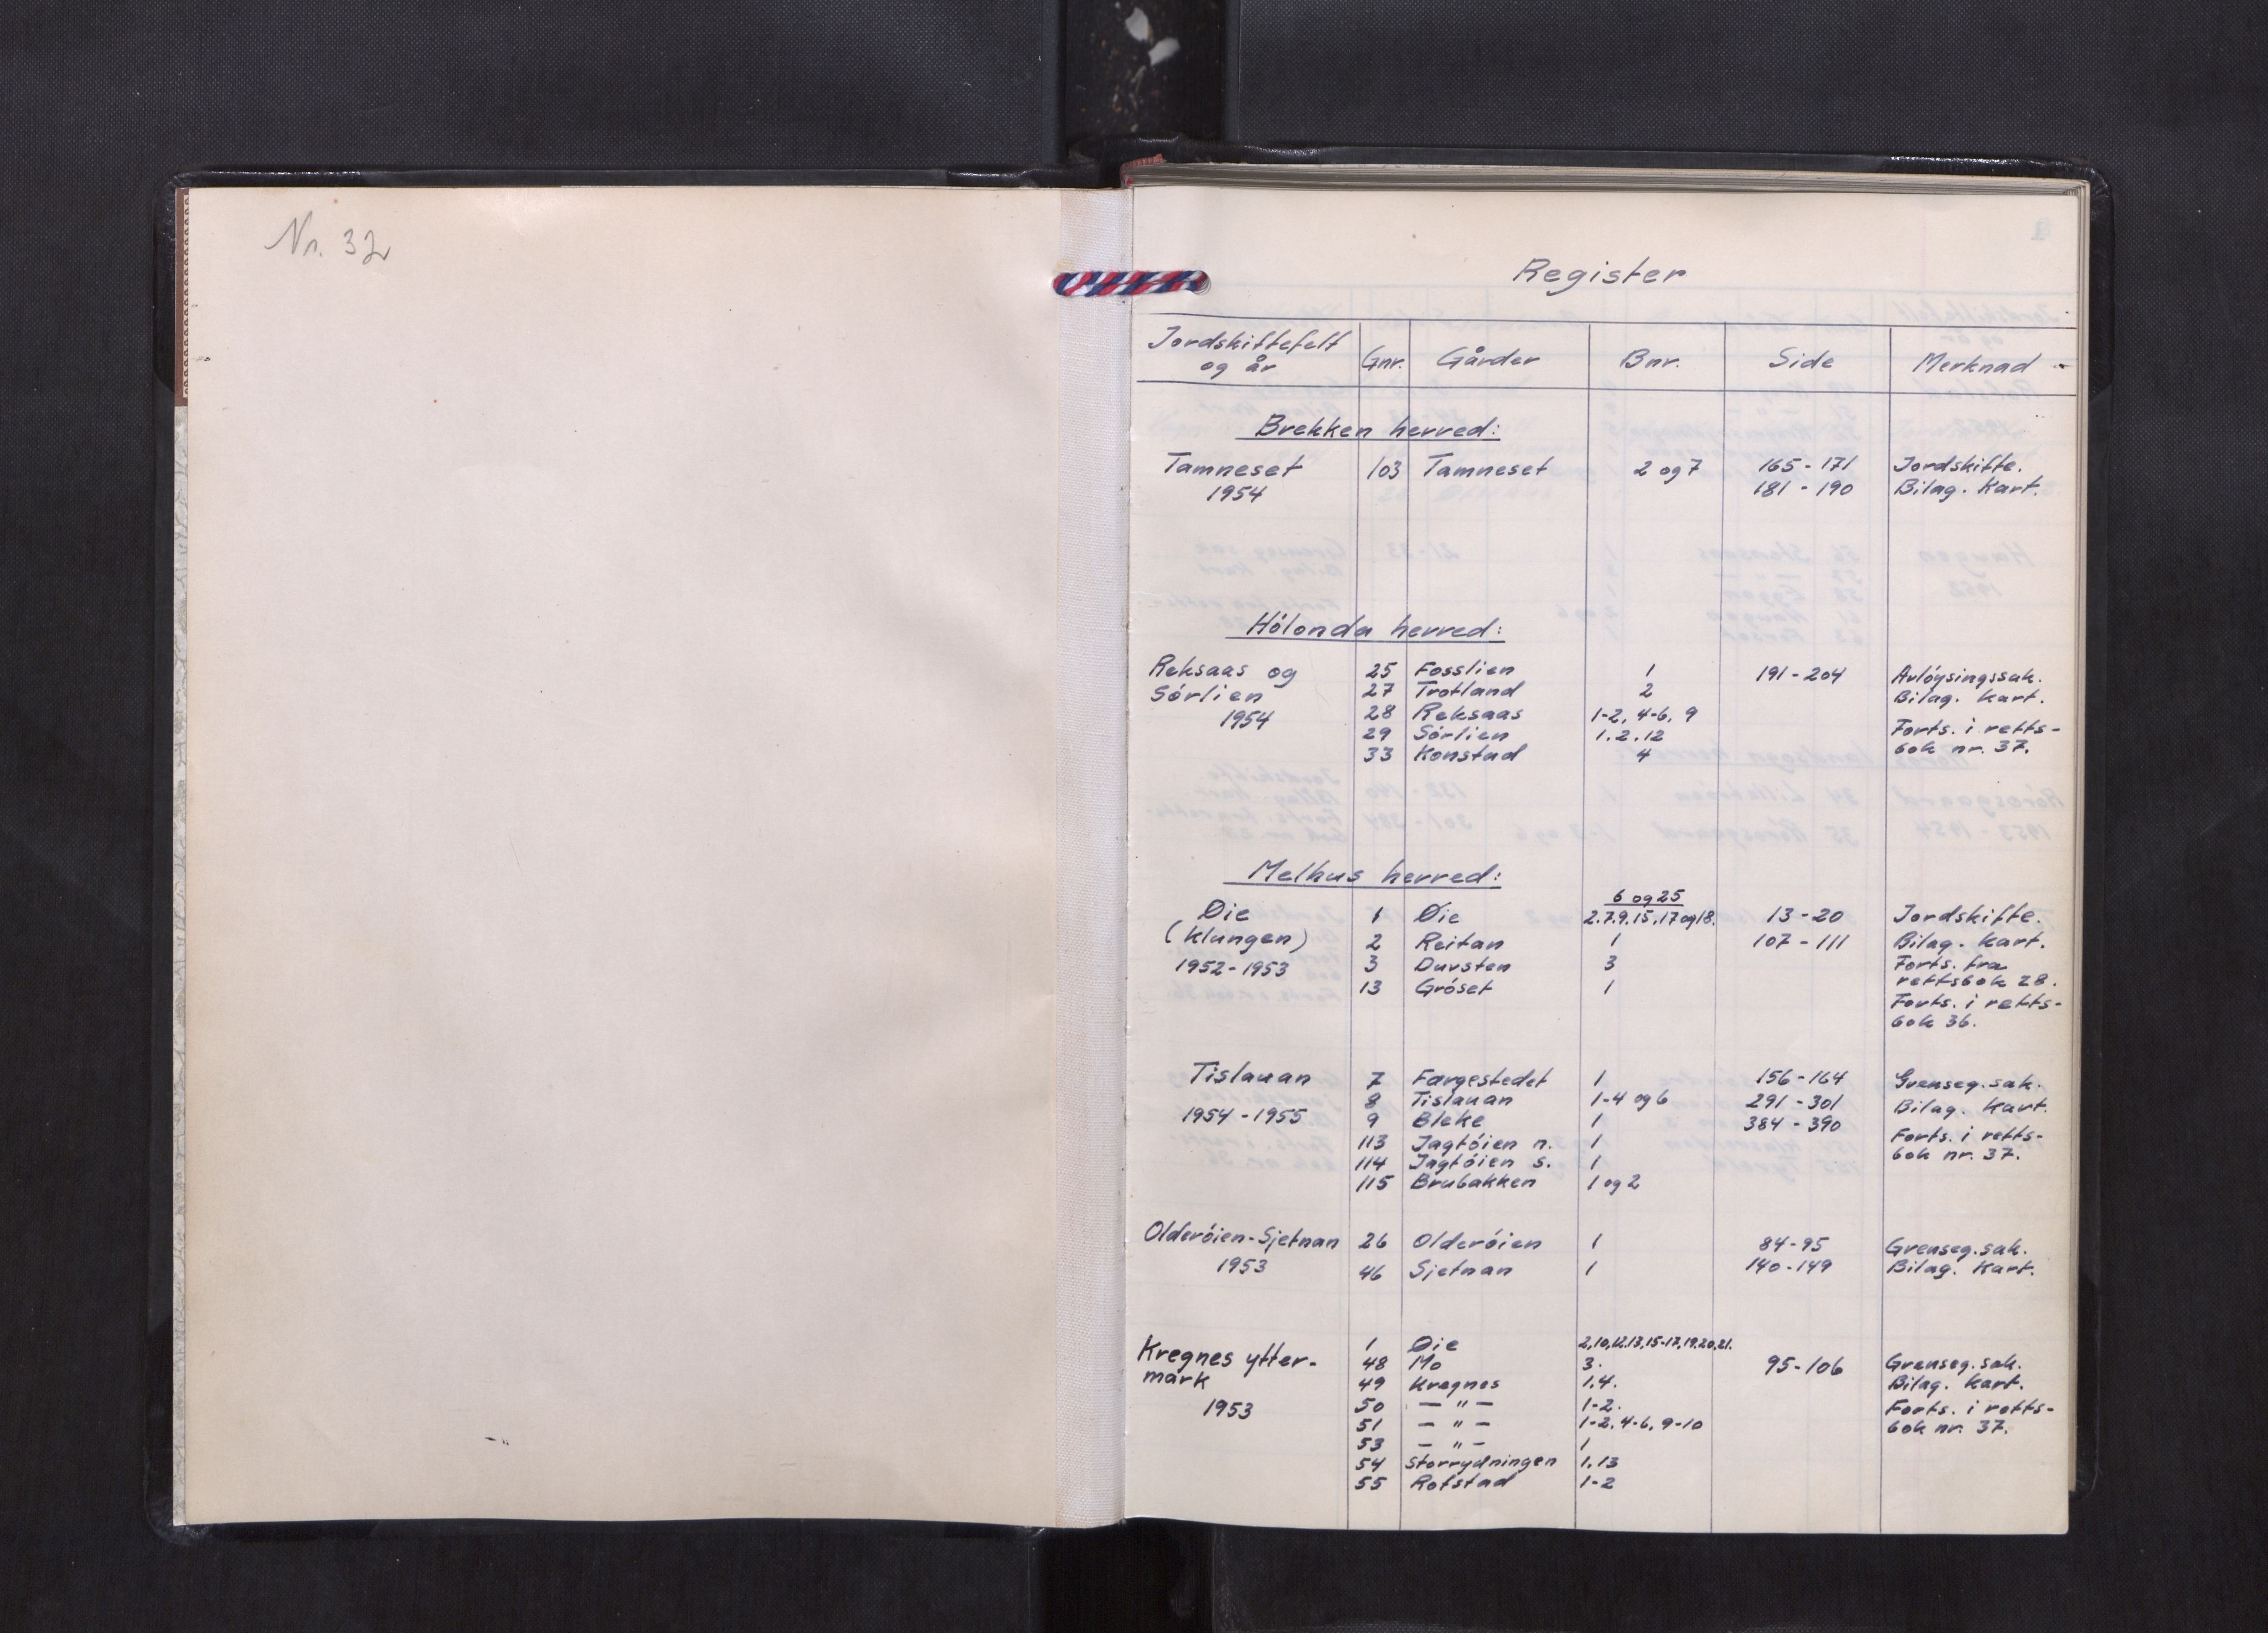 Nr. 32
Register
Jordskiftefelt og år Gnr. Gårder Bnr. Side Merknad
Brekken herred:
Tamneset 103 Tamneset 2 og 7 165-171 Jordskifte.
1954 181-190 Bilag. Kart.
Hólonda herred:
Reksaas og 25 Fosslien 1 191-204 Avlóysingssak.
Sórlien 27 Trotland 2 Bilag. Kart.
1954 28 Reksaas 1-2, 4-6, 9
29 Sórlien 1.2.12 Forts. i retts-
33 Konstad 4 bok nr. 37.
Melhus herred:
6 og 25
Øie 1 Øie 2.7.9.15,17 og 18. 13-20 Jordskifte.
(Klungen) 2 Reitan 1 107-111 Bilag. Kart.
1952-1953 3 Dursten 3 Forts. fra
13 Gróset 1 rettsbok 28.
Forts. i retts-
bok 36.
Tislauan 7 Fargestedet 1 156-164 Grenseg.sak.
8 Tislauan 1-4 og 6 291-301 Bilag. Kart.
1954-1955 9 Bleke 1 384-390
113 Jagtóien n. 1 Forts. i retts-
114 Jagtóien s. 1 bok nr. 37.
115 Brubakken 1 og 2
Olderóien-Sjetnan 26 Olderóien 1 84-95 Grenseg.sak.
1953 46 Sjetnan 1 140-149 Bilag. Kart.
1 Øie 2,10,12.13,15-17,19.20,21.
Kregnes ytter- 48 Mo 3. 95-106 Grenseg.sak.
mark 49 Kregnes 1.4. Bilag. Kart.
1953 50 — " — 1-2. Forts. i retts-
51 — " — 1-2, 4-6, 9-10 bok nr. 37.
53 — " — 1
54 Storrydningen 1.13
55 Rofstad 1-2